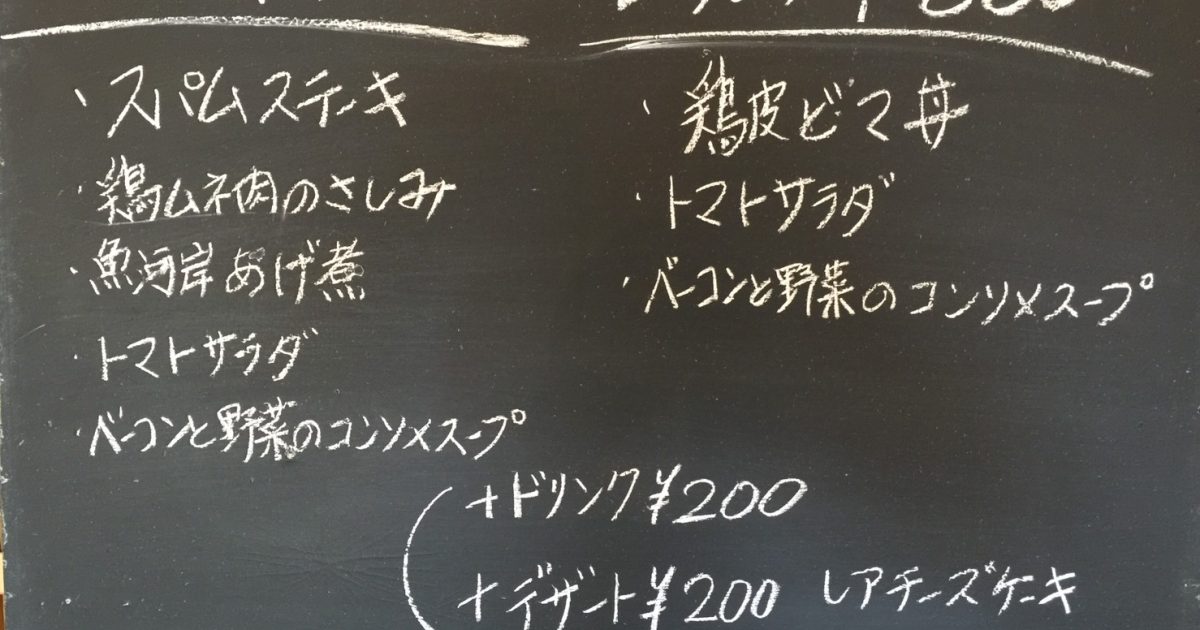 ・スパムステーキ
・鶏ムネ肉のさしみ
・魚河岸あげ煮
・トマトサラダ
・ベーコンと野菜のコンソメスープ
・鶏皮どマ丼
・トマトサラダ
・ベーコンと野菜のコンソメスープ
+ドリンク¥200
+デザート¥200 レアチーズケーキ